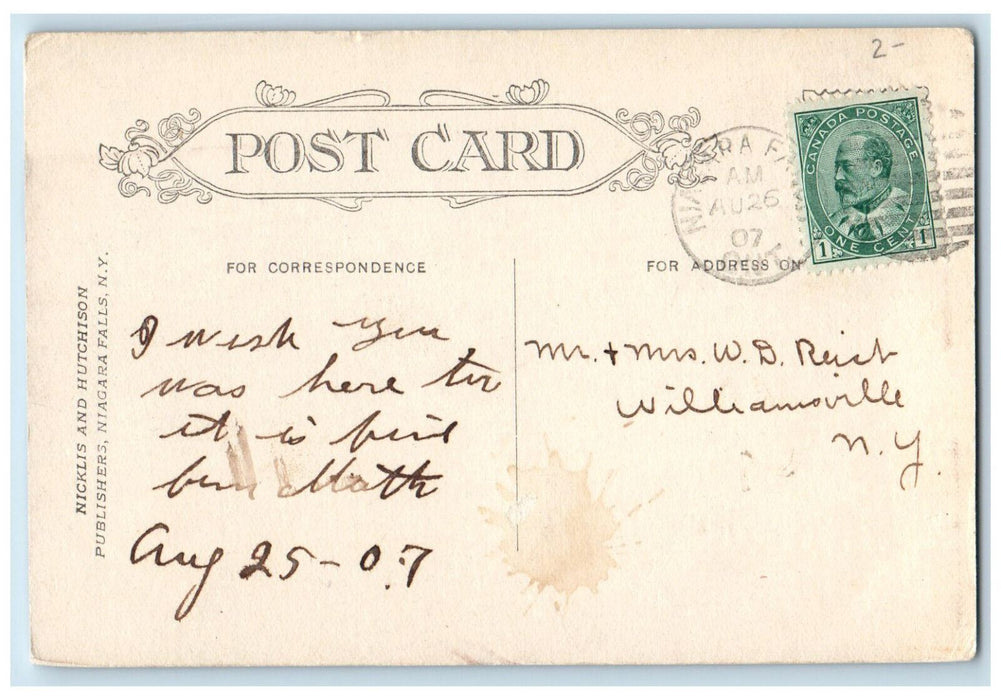 2-
POST CARD
CANADA POSTAGE
ONE CENT
1 1
NIAGARA FA
AM
AU 26
07
ONT
FOR CORRESPONDENCE
FOR ADDRESS ON
NICKLIS AND HUTCHISON
PUBLISHERS, NIAGARA FALLS, N.Y.
I wish you
was here too
it is fine
Aug 25-07
Mr. + Mrs. W. D. Reist
Williamsville
N.Y.